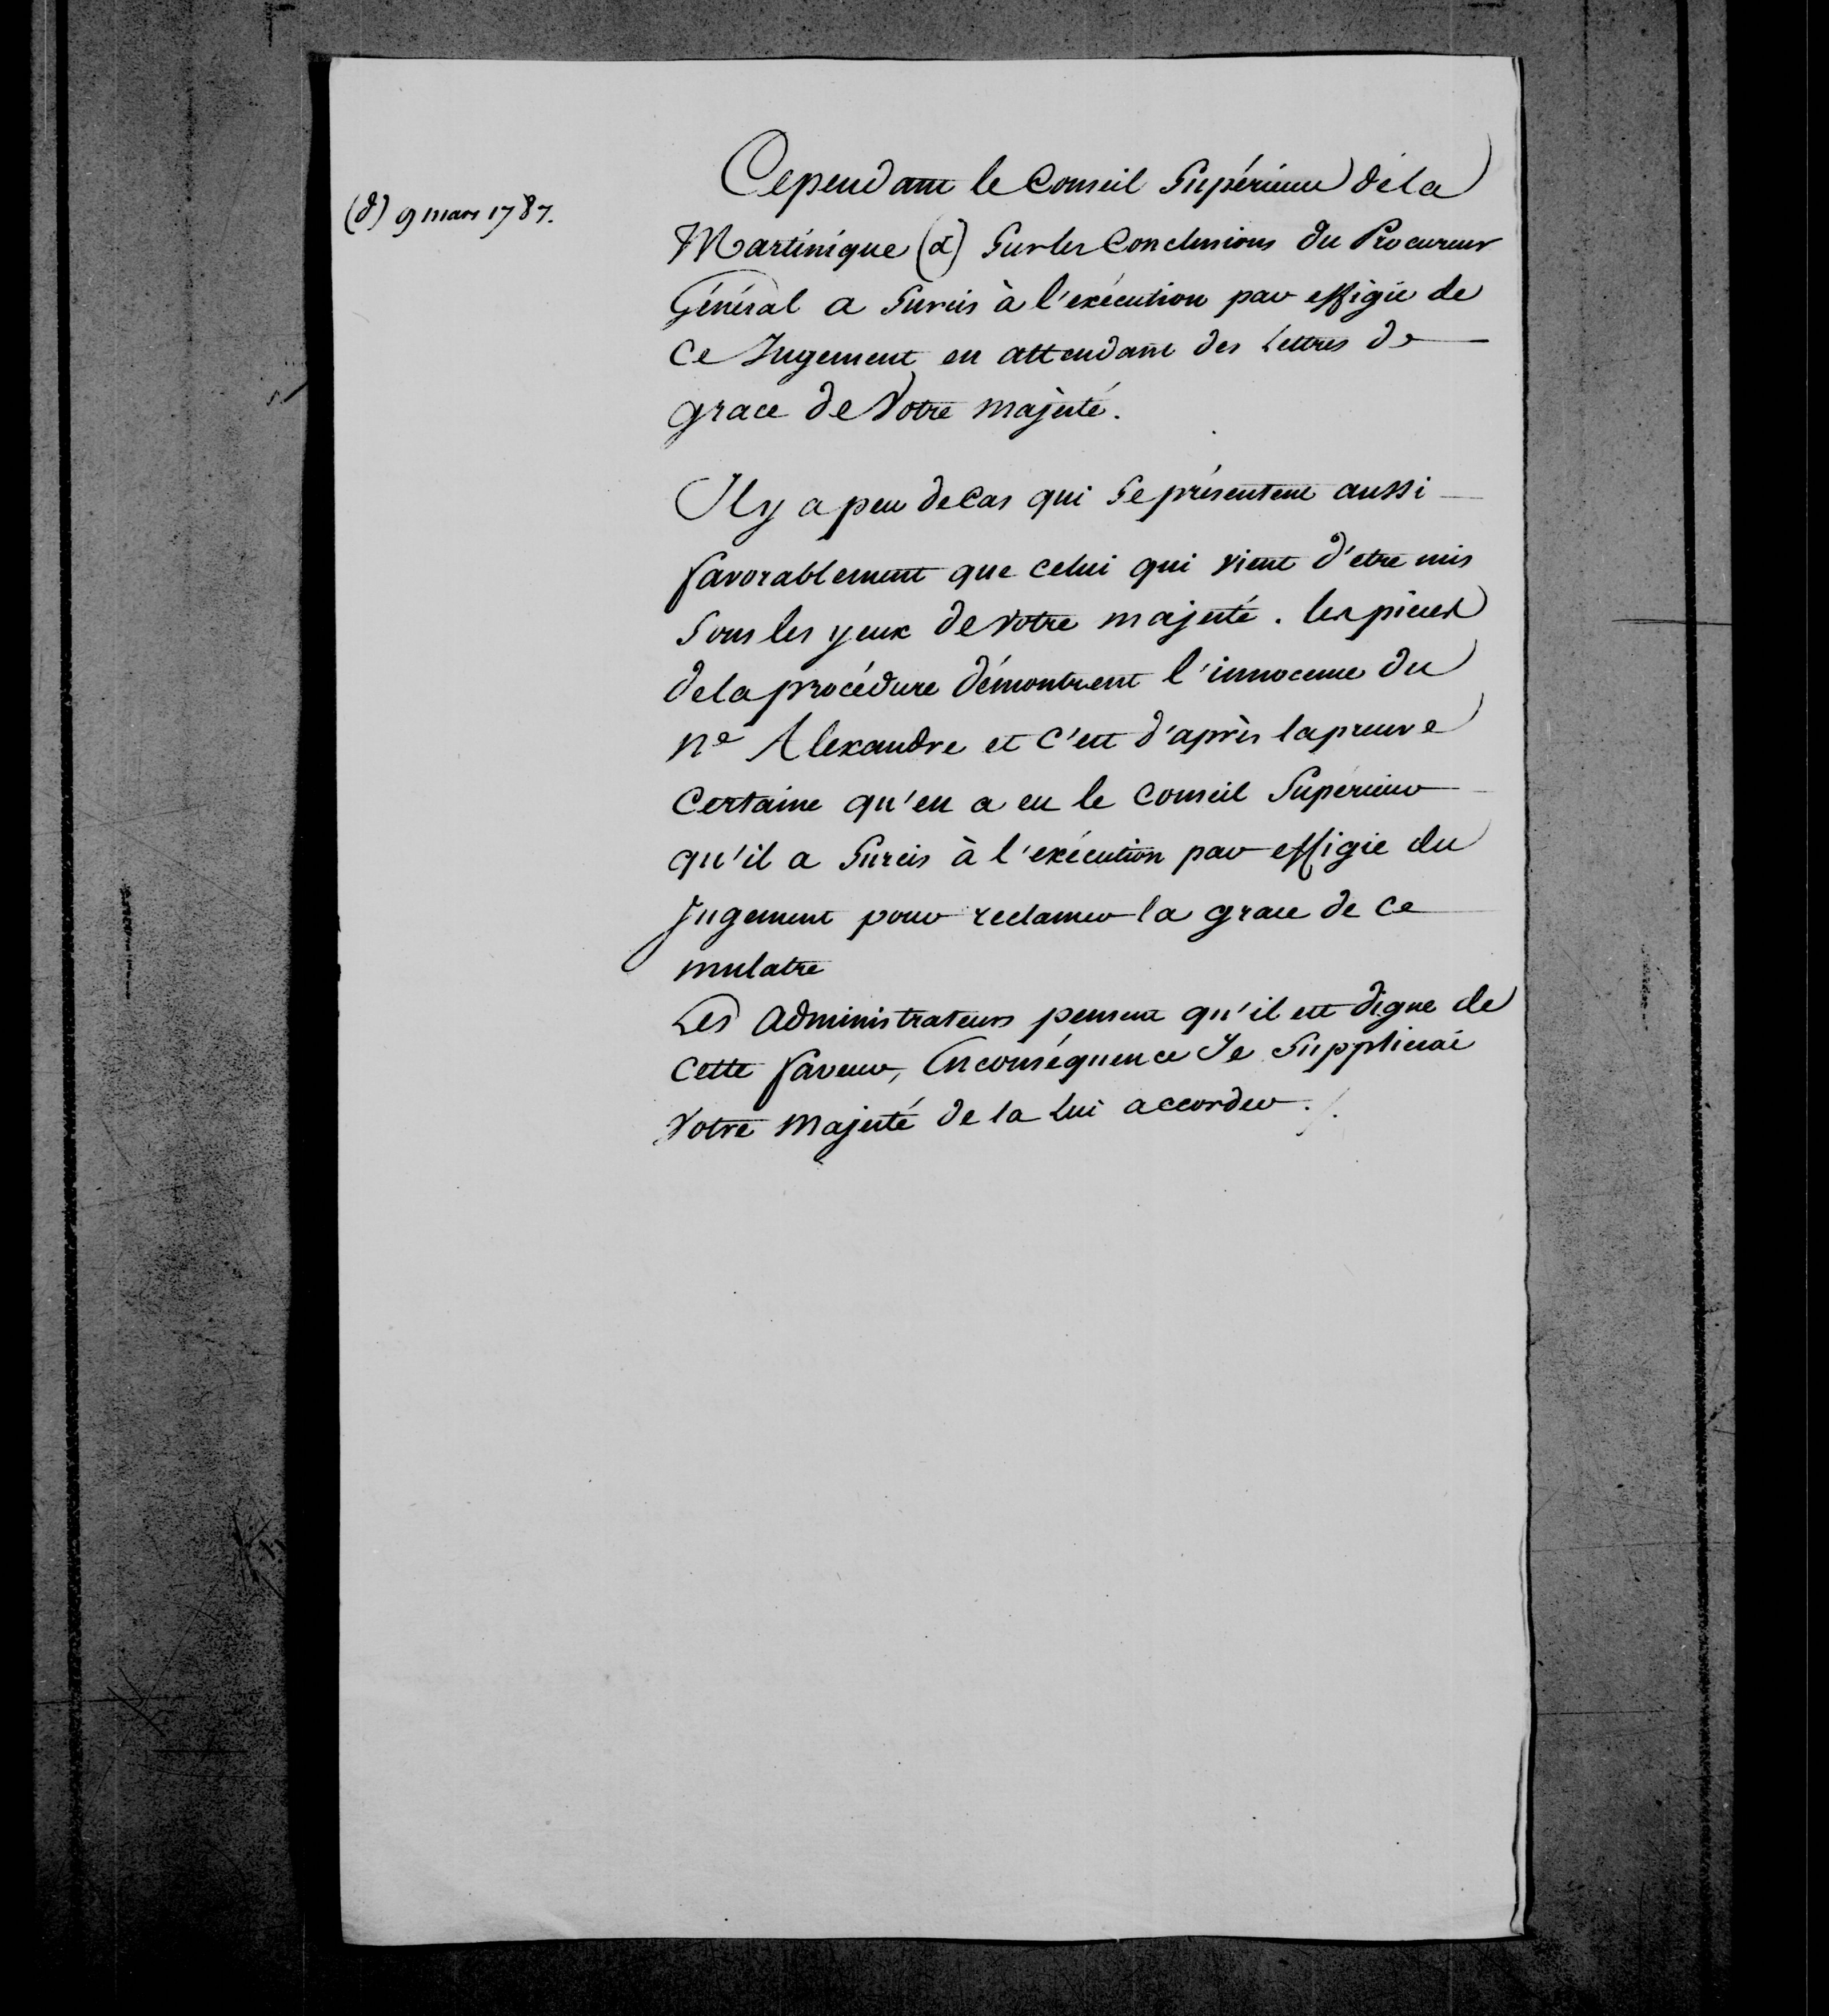 (d) 9 mars 1787.
Cependant le Conseil Supérieur de la
Martinique (d) Sur les Conclusions du Procureur
Général a Surcis à l'exécution par effigie de
Ce Jugement en attendant des Lettres de
grace de Votre majesté.
Il y a peu de Cas qui Se présentent aussi
favorablement que celui qui vient d'etre mis
Sous les yeux de Votre majesté. les pieces
de la procédure démontrent l'innocence du
né Alexandre et c'est d'après la preuve
Certaine qu'en a eu le Conseil Supérieur
qu'il a Surcis à l'exécution par effigie du
Jugement pour reclamer la grace de ce
mulatre
Les Administrateurs pensent qu'il est digne de
Cette faveur, En conséquence Je Supplierai
Votre Majesté de la Lui accorder./.